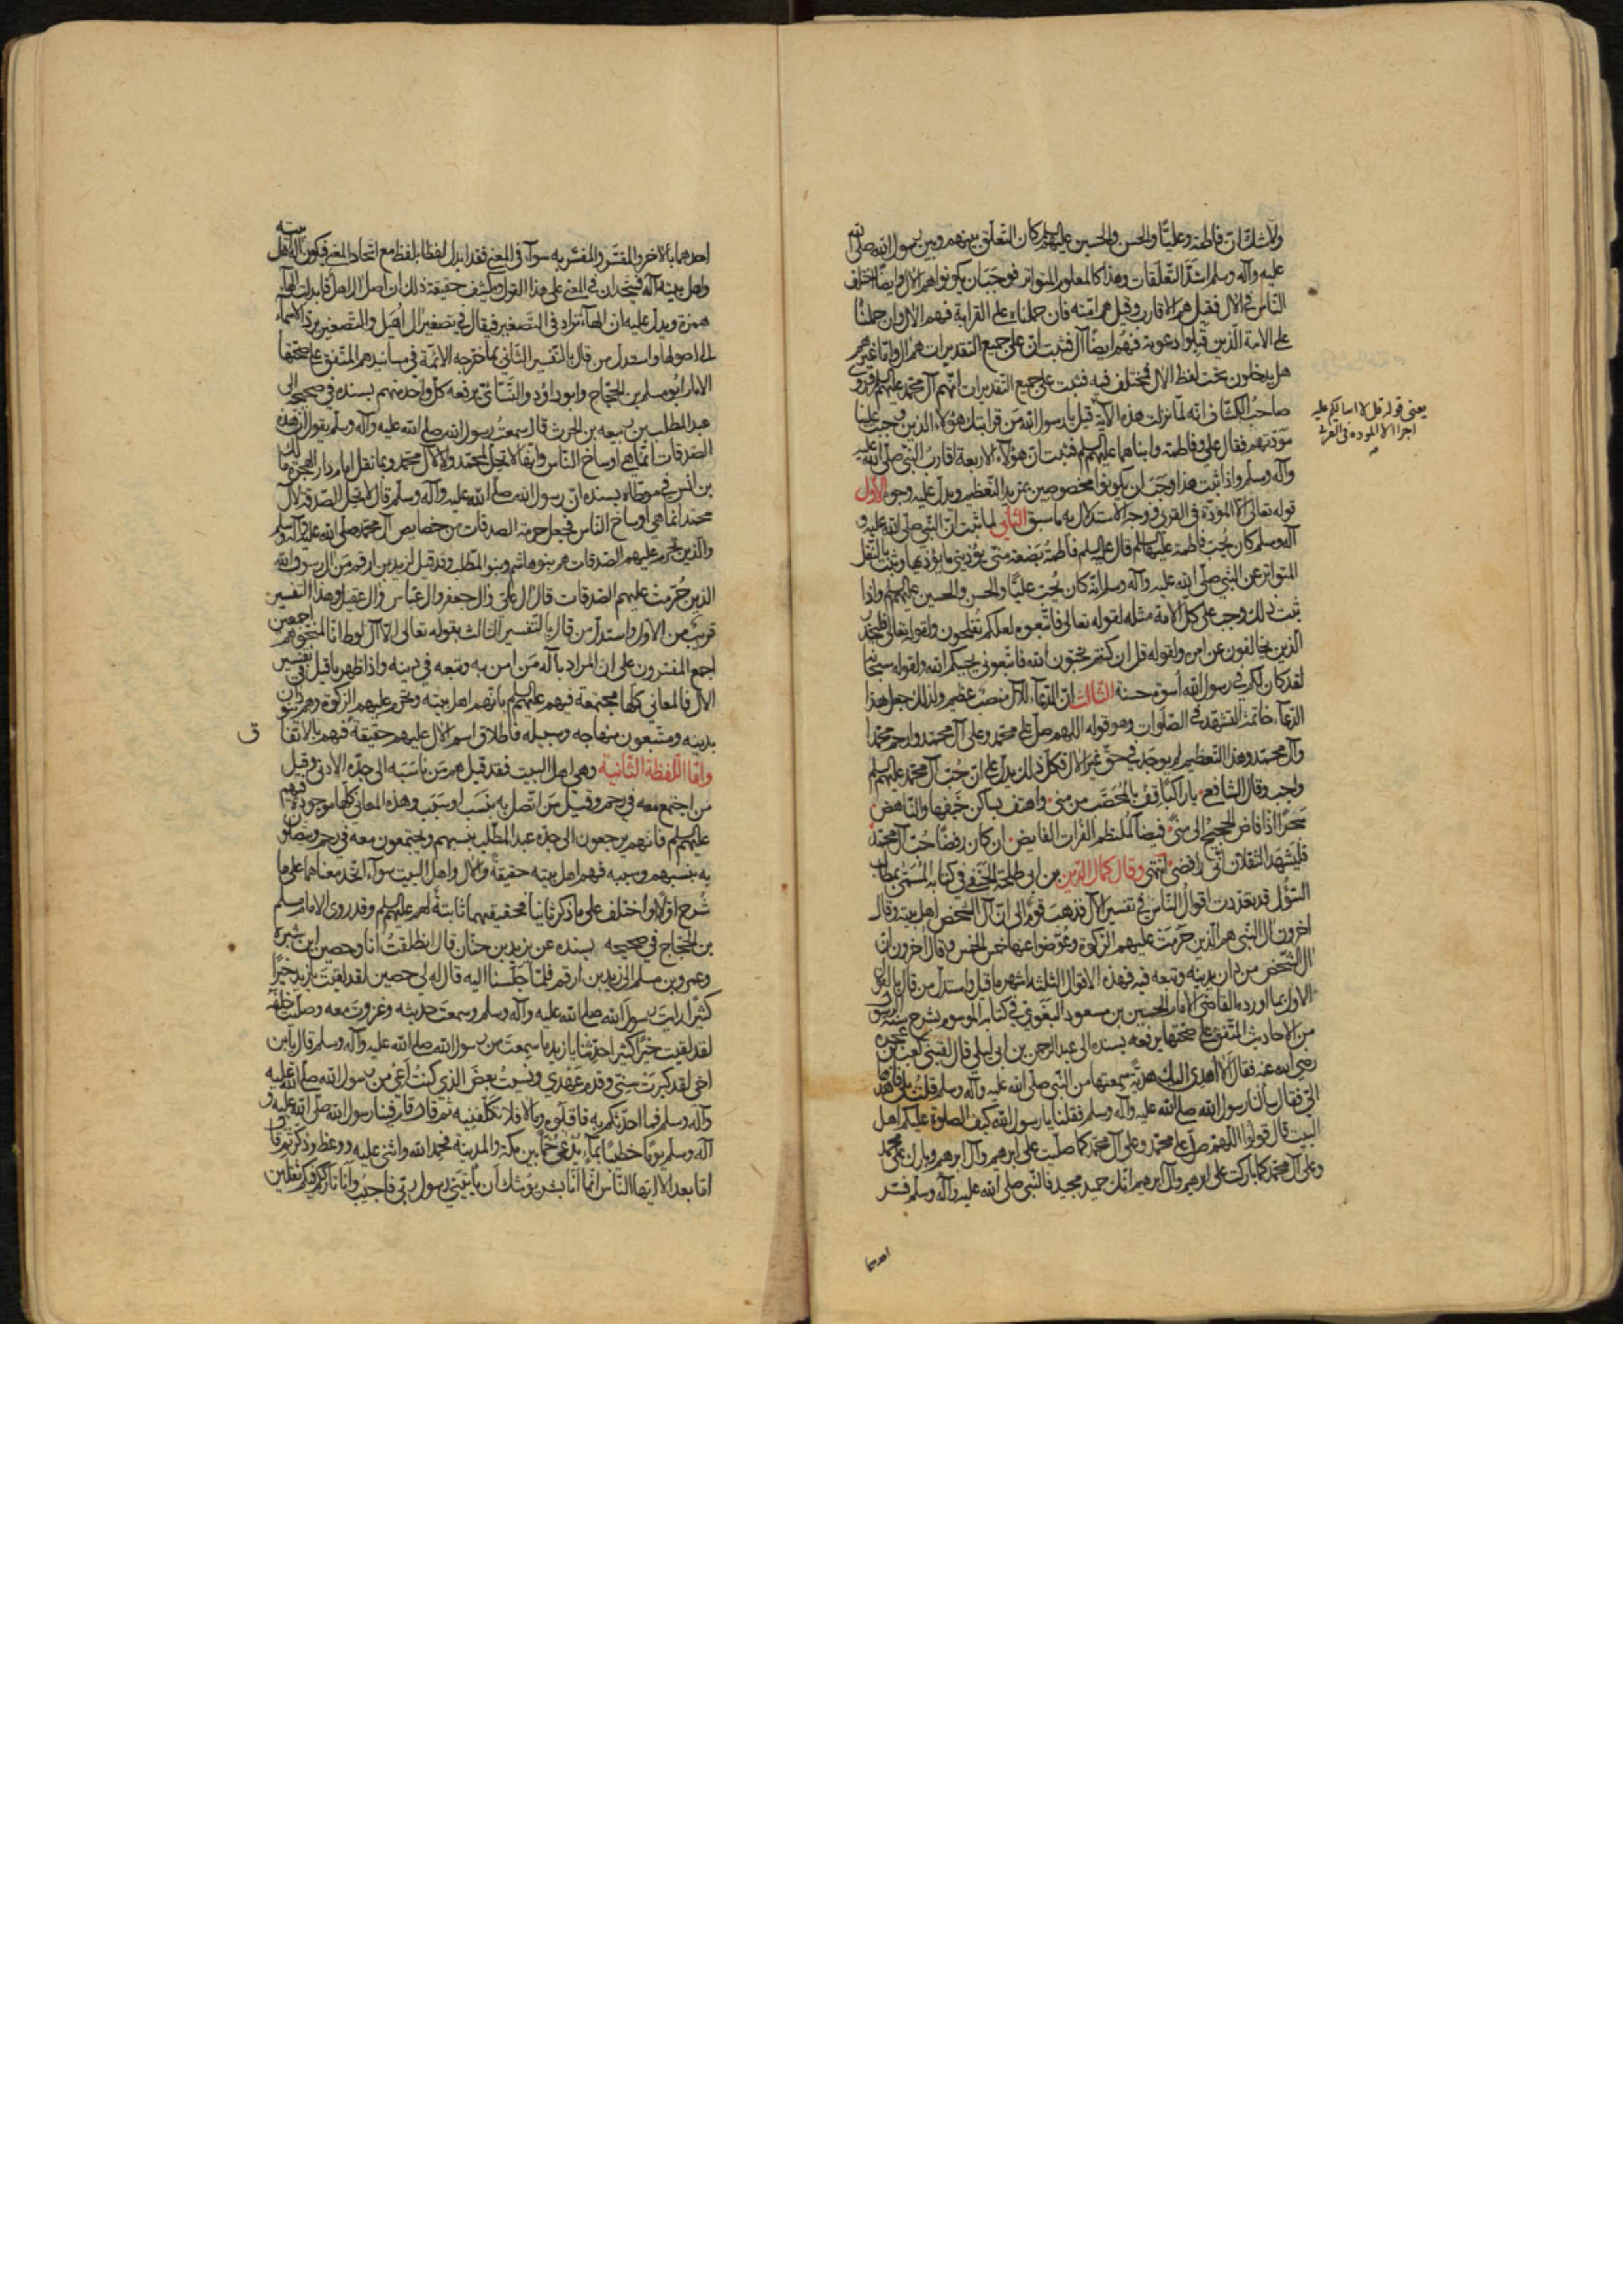 ولا شك ان فاطمة وعليا والحسن والحسين عليهم السلم كان التعلق بينهم وبين رسول الله صلى الله
عليه وآله وسلم اشد التعلقات وهذا كالمعلوم المتواتر فوجب ان يكونوا هم الال وايضا اختلف
الناس في الال فقيل هم الاقارب وقيل هم امته فان حملناه على القرابة فهم الال وان حملنا
على الامة الذين قبلوا دعوته فهم ايضا آل فثبت ان على جميع التقديرات هم ال واما غيرهم
هل يدخلون تحت لفظ الال فمختلف فيه فثبت على جميع التقديرات انهم آل محمد عليهم السلم وروى
صاحب الكشاف انه لما نزلت هذه الآية قيل يا رسول الله من قرابتك هؤلاء الذين وجبت علينا
مودتهم فقال علي وفاطمة وابناهما عليهم السلم فثبت ان هؤلاء الاربعة اقارب النبي صلى الله عليه
وآله وسلم واذا ثبت هذا وجب ان يكونوا مخصوصين بمزيد التعظيم ويدل عليه وجوه الاول
قوله تعالى الا المودة في القربى ووجه الاستدلال به ما سبق الثاني لما ثبت ان النبي صلى الله عليه و
آله وسلم كان يحب فاطمة عليها السلم قال عليه السلم فاطمة بضعة مني يؤذيني ما يؤذيها وثبت بالنقل
المتواتر عن النبي صلى الله عليه وآله وسلم انه كان يحب عليا والحسن والحسين عليهم السلم واذا
ثبت ذلك وجب على كل الامة مثله لقوله تعالى فاتبعوه لعلكم تفلحون ولقوله تعالى فليحذر
الذين يخالفون عن امره ولقوله قل ان كنتم تحبون الله فاتبعوني يحببكم الله ولقوله سبحانه
لقد كان لكم في رسول الله أسوة حسنة الثالث ان الدعاء للآل منصب عظيم ولذلك جعل هذا
الدعاء خاتمة التشهد في الصلوات وهو قوله اللهم صل على محمد وعلى آل محمد وارحم محمدا
وآل محمد وهذا التعظيم لم يوجد في حق غير الال فكل ذلك يدل على ان حب آل محمد عليهم السلم
واجب وقال الشافعي يا راكبا قف بالمحصب من منى واهتف بساكن خيفها والناهض
سحرا اذا فاض الحجيج الى منى فيضا كملتطم الفرات الفايض ان كان رفضا حب آل محمد
فليشهد الثقلان اني رافضي انتهى وقال كمال الدين بن ابي طلحة الحنفي في كتابه المسمى بمطالب
السؤل قد تعددت اقوال الناس في تفسير الآل فذهب قوم الى ان آل الشخص اهل بيته وقال
اخرون آل النبي هم الذين حرمت عليهم الزكوة وعوضوا عنها خمس الخمس وقال اخرون ان
ال الشخص من دان بدينه وتبعه فيه فهذه الاقوال الثلثة اشهر ما قيل واستدل من قال بالقول
الاول بما اورده القاضي الامام الحسين بن مسعود البغوي في كتابه الموسوم بشرح سنة الرسول
من الاحاديث المتفق على صحتها يرفعه بسنده الى عبد الرحمن بن ابي ليلى قال لقيني كعب بن عجرة
رضي الله عنه فقال الا أهدي اليك هدية سمعتها من النبي صلى الله عليه وآله وسلم قلت بلى فاهدها
الي فقال سألنا رسول الله صلى الله عليه وآله وسلم فقلنا يا رسول الله كيف الصلوة عليكم اهل
البيت قال قولوا اللهم صل على محمد وعلى آل محمد كما صليت على ابرهيم وآل ابرهيم وبارك على محمد
وعلى آل محمد كما باركت على ابرهيم وآل ابرهيم انك حميد مجيد فالنبي صلى الله عليه وآله وسلم فسر
احدهما
يعنى قوله قل لا اسالكم عليه
اجرا الا المودة فى القربى
احدهما بالاخر والمفسر والمفسر به سواء في المعنى فقد ابدل لفظا بلفظ مع اتحاد المعنى فيكون آله اهل بيته
واهل بيته آله فيتحدان في المعنى على هذا القول ويكشف حقيقة ذلك ان اصل ال اهل فابدلت الهاء
همزة ويدل عليه ان الهاء تزاد في التصغير فيقال في تصغير ال اهيل والتصغير يرد الاسماء
الى اصولها واستدل من قال بالتفسير الثاني بما خرجه الائمة في مسانيدهم المتفق على صحتها
الامام ابو مسلم بن الحجاج وابو داؤد والنسائي يرفعه كل واحد منهم بسنده في صحيحه الى
عبد المطلب بن ربيعه بن الحرث قال سمعت رسول الله صلى الله عليه وآله وسلم يقول ان هذه
الصدقات انما هي اوساخ الناس وانها لا تحل لمحمد ولا لآل محمد وبما نقل امام دار الهجرة مالك
بن انس في موطاه بسنده ان رسول الله صلى الله عليه وآله وسلم قال لا تحل الصدقة لآل
محمد انما هي اوساخ الناس فجعل حرمة الصدقات من خصايص آل محمد صلى الله عليه وآله وسلم
والذين تحرم عليهم الصدقات هم بنو هاشم وبنو المطلب وقد قيل لزيد بن ارقم من آل رسول الله
الذين حرمت عليهم الصدقات قال آل علي وآل جعفر وال عباس وال عقيل وهذا التفسير
قريب من الاول واستدل من قال بالتفسير الثالث بقوله تعالى الا آل لوط انا لمنجوهم اجمعين
اجمع المفسرون على ان المراد بآله من امن به وتبعه في دينه واذا ظهر ما قيل في تفسير
الال فالمعاني كلها مجتمعة فيهم عليهم السلم بانهم اهل بيته وتحرم عليهم الزكوة وهم دانوا
بدينه ومتبعون منهاجه وسبيله فاطلاق اسم الال عليهم حقيقة فهم بالاتفا
ق
واما اللفظة الثانية وهي اهل البيت فقد قيل هم من ناسبه الى جده الادنى وقيل
من اجتمع معه في رحم وقيل من اتصل به بنسب او سبب وهذه المعاني كلها موجودة فيهم
عليهم السلم فانهم يرجعون الى جده عبد المطلب بنسبهم ويجتمعون معه في رحم ومتصلون
به بنسبهم وسببه فهم اهل بيته حقيقة والال واهل البيت سواء اتحد معناهما على ما
شرح اولا او اختلف على ما ذكر ثانيا فحقيقتهما ثابتة لهم عليهم السلم وقد روى الامام مسلم
بن الحجاج في صحيحه بسنده عن يزيد بن حنان قال انطلقت أنا وحصين ابن سبرة
وعمرو بن مسلم الى زيد بن ارقم فلما جلسنا اليه قال له لي حصين لقد لقيت يا زيد خيرا
كثيرا رايت رسول الله صلى الله عليه وآله وسلم وسمعت حديثه وغزوت معه وصليت خلفه
لقد لقيت خيرا كثيرا حدثنا يا زيد ما سمعت من رسول الله صلى الله عليه وآله وسلم قال يا بن
اخي لقد كبرت سني وقدم عهدي ونسيت بعض الذي كنت أعي من رسول الله صلى الله عليه
وآله وسلم فما احدثكم به فاقبلوه وما لا فلا تكلفونيه ثم قال قام فينا رسول الله صلى الله عليه و
آله وسلم يوما خطيبا بماء يدعى خما بين مكة والمدينة فحمد الله واثنى عليه ووعظ وذكر ثم قال
اما بعد الا ايها الناس انما أنا بشر يوشك ان ياتيني رسول ربي فاجيب وأنا تارك فيكم ثقلين